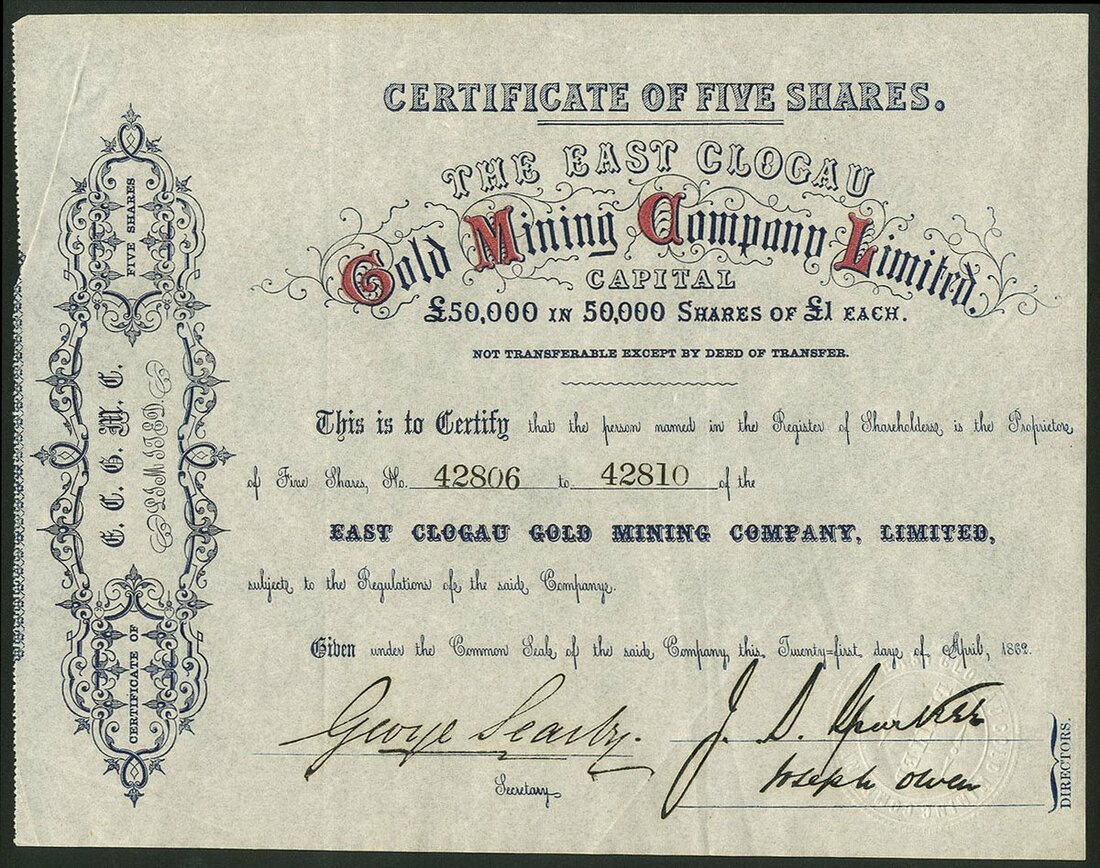 CERTIFICATE OF FIVE SHARES.
THE EAST CLOGAU
Gold Mining Company Limited.
CAPITAL
£50,000 IN 50,000 SHARES OF £1 EACH.
NOT TRANSFERABLE EXCEPT BY DEED OF TRANSFER.
This is to Certify that the person named in the Register of Shareholders, is the Proprietor
of Five Shares, No. 42806 to 42810 of the
EAST CLOGAU GOLD MINING COMPANY, LIMITED,
subject to the Regulations of the said Company.
Given under the Common Seal of the said Company, this Twenty-first day of April, 1862.
George Searby.
J. D.
Joseph Owen
Secretary
DIRECTORS.
CERTIFICATE OF
FIVE SHARES
E. C. G. M. C.
LIMITED.